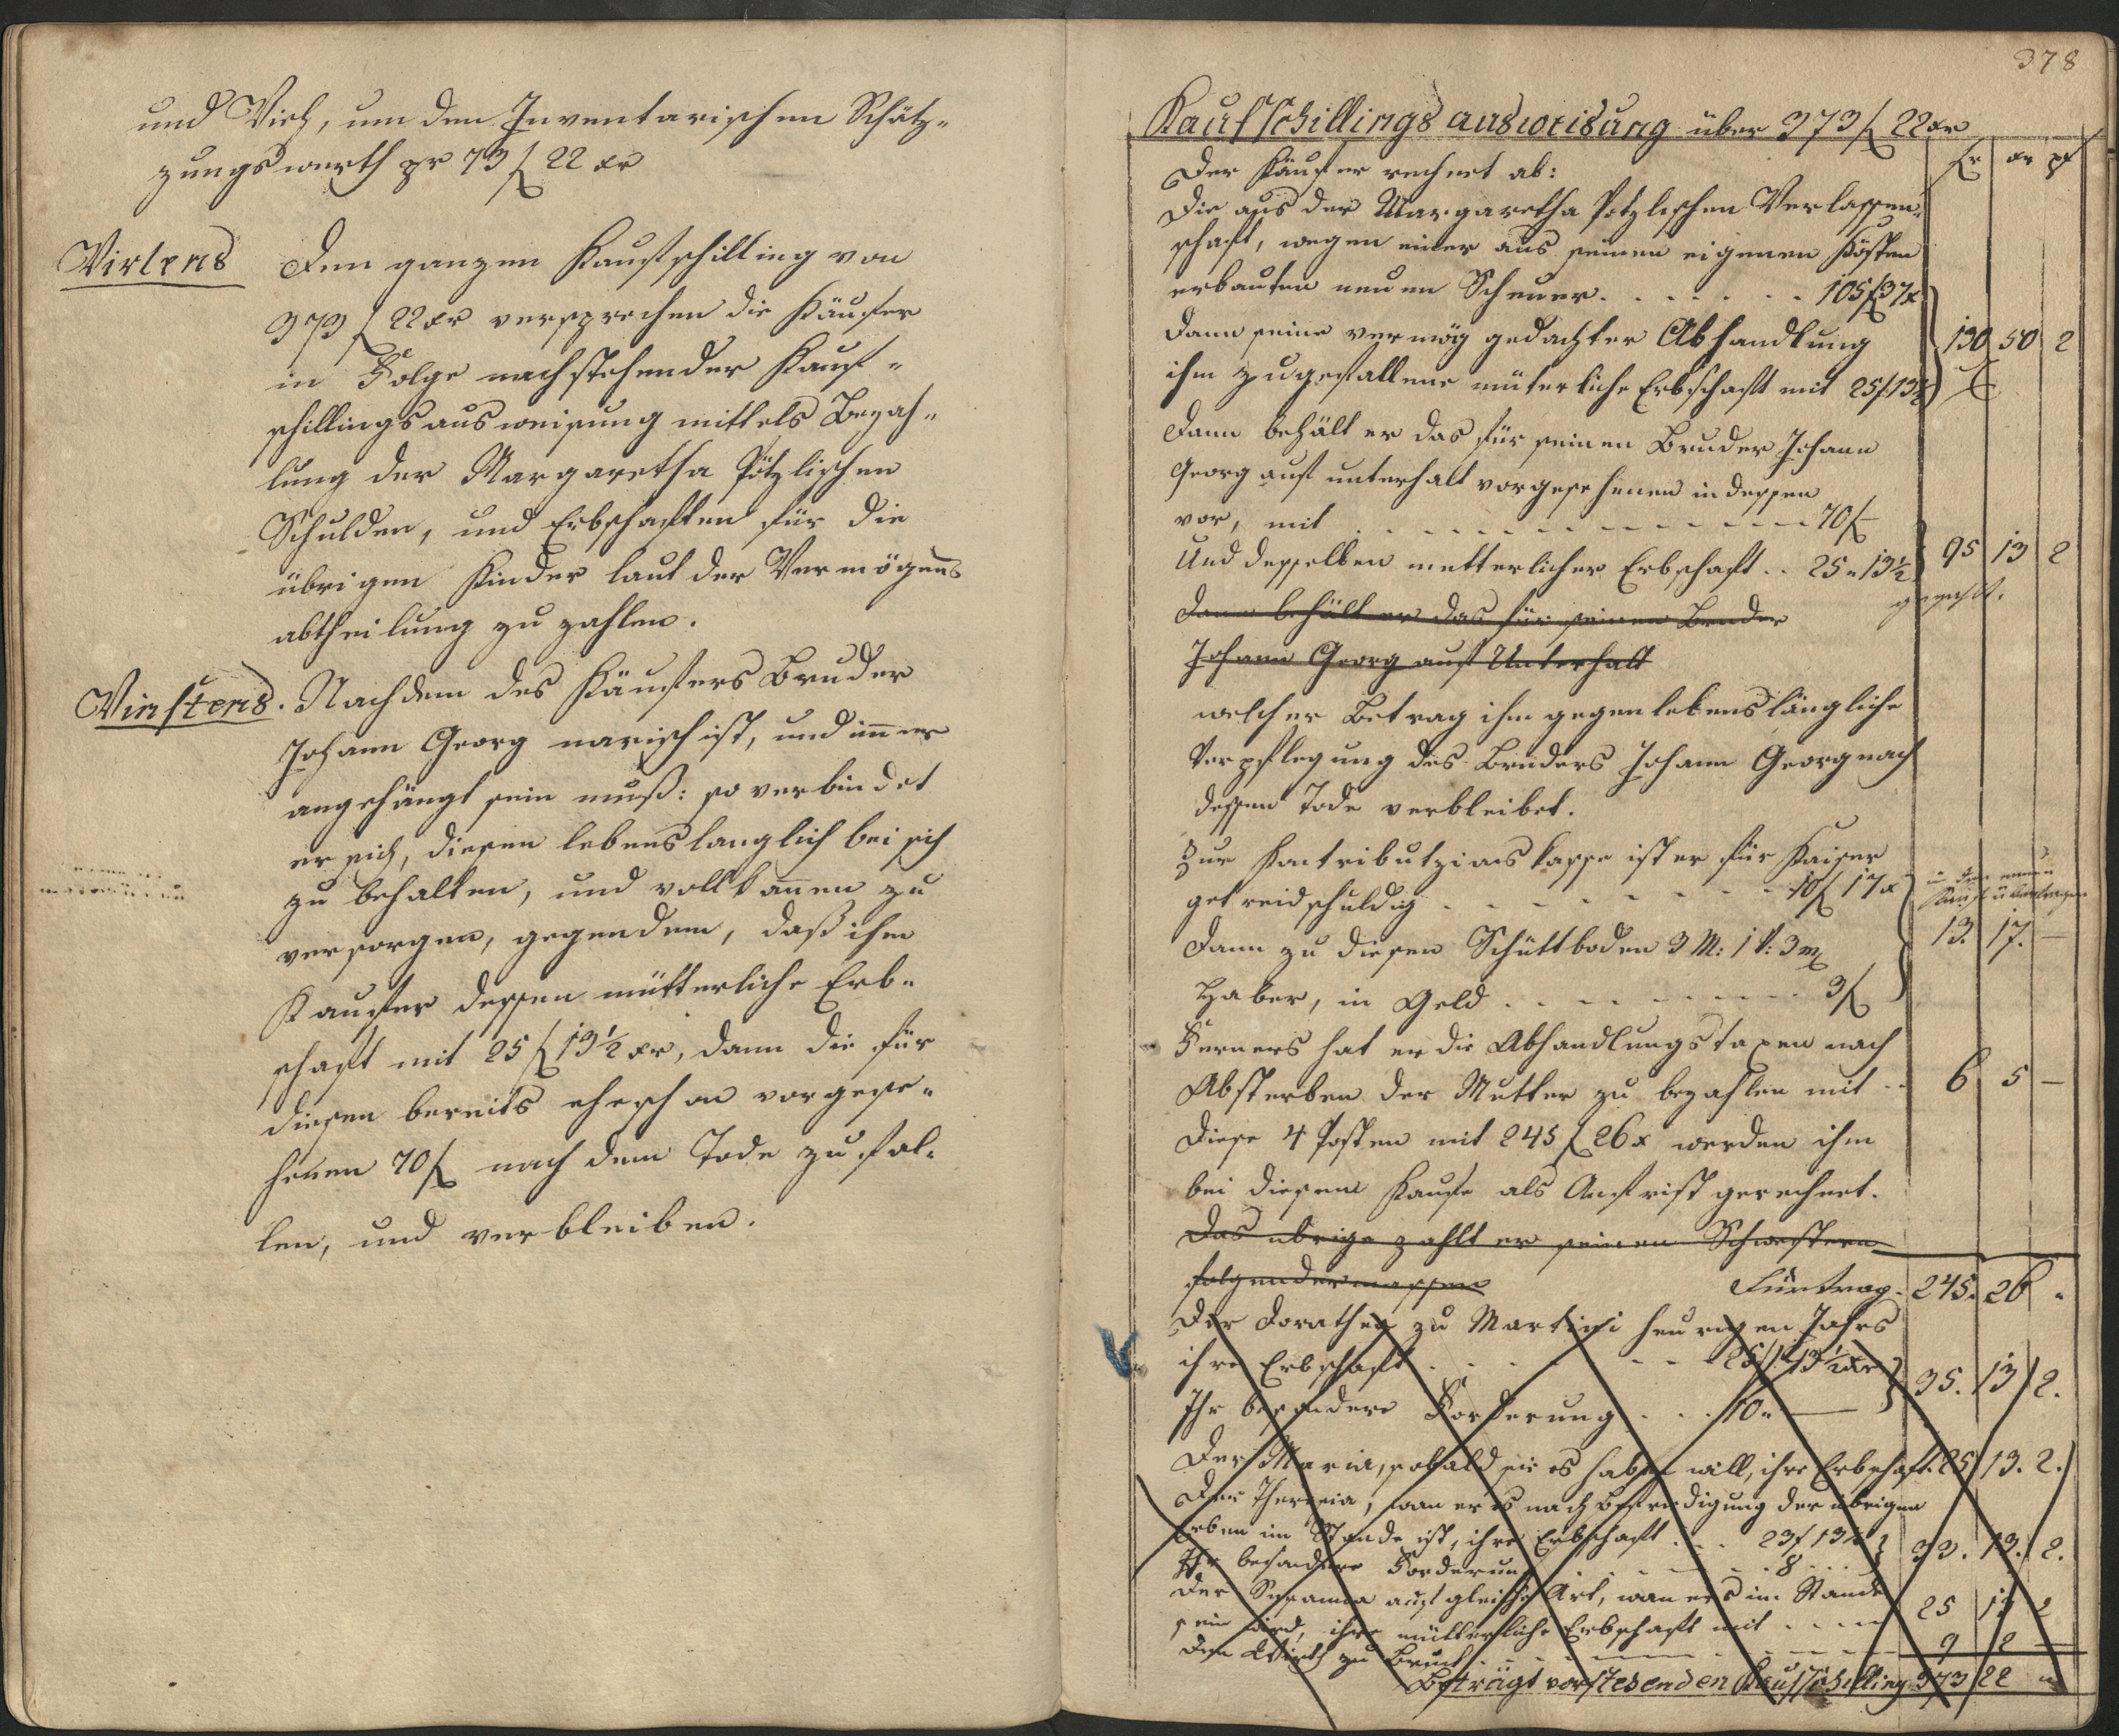 und Vieh, um den Inventarischen Schätz-
zungswerth pr 73 f 22 xr
Virtens Den ganzen Kaufschilling von
373 f 22 xr versprechen die Käufer
in Folge nachstehender Kauf-
schillingsausweisung mittels Bezah-
lung der Margaretha Pötzlischen
Schulden, und Erbschaften für die
übrigen Kinder laut der Vermögens
abtheilung zu zahlen.
Vinftens. Nachdem des Käufers Bruder
Johann Georg narisch ist, und imer
angehängt sein muß: so verbindet
er sich, diesen lebenslanglich bei sich
zu behalten, und vollkomen zu
versorgen, gegen dem, daß ihm
Kaufer dessen mütterliche Erb-
schaft mit 25 f 13½ xr, dann die für
diesen bereits ehe schon vorgese-
henen 70 f nach dem Tode zu fal-
len, und verbleiben.
378
Kaufschillings ausweisung über 373 f 22 xr
fr xr pf
Der Käufer rechnet ab:
Die aus der Margaretha Potzlischen Verlassen-
schaft, wegen einer aus seinen eigenen Kösten
erbauten neuen Scheuer. . . . . . . 105 f 37 x
Dann seine vermög gedachter Abhandlung
ihm zugefallene müterliche Erbschaft mit 25 f 13½ 130 50 2
Dann behält er das für seinen Bruder Johann
Georg auf unterhalt vorgesehenen indessen
vor, mit . . . . . . . 70 f
Und desselben mutterlicher Erbschaft . . 25 " 13½ 95 13 2
Dann behält er das für seinen Bruder
Johann Georg auf Unterhalt
welcher Betrag ihm gegen lebenslängliche
Verpflegung des Bruders Johann Georg nach
dessen Tode verbleibet.
Zur Kontributzionskasse ist er für Kaiser
getreid schuldig . . . . . . . 10 f 17 x
in den neuen
Kauf übertragen
Dann zu diesen Schüttboden 3 M: 1 V: 3 m 13. 17. —
Haber, in Geld . . . . . . . 3 f
Ferners hat er die Abhandlungstaxen nach
Absterben der Mutter zu bezahlen mit . . 6 5 —
Diese 4 Posten mit 245 f 26 x werden ihm
bei diesem Kaufe als Anfrist gerechnet.
Das übrige zahlt er seinen Schwestern
folgendermassen Fürtrag. 245. 26 "
Der Dorathea zu Martini heurigen Jahrs
ihre Erbschaft . . . . . . 25 f 13½ xr
Ihr besondere Forderung . . . 10 " — 35. 13 2.
Der Maria, sobald sie es haben will, ihre Erbschaft. 25 13. 2.
Der Theresia, wan er es nach Befriedigung der übrigen
Erben im Stande ist, ihre Erbschaft . . . 25 f 13½
Ihr besondere Forderung . . . . . 8 . . . 33. 13. 2.
Der Susanna auf gleiche Art, wan er es im Stande
sein wird, ihre mütterliche Erbschaft mit . . . . 25 13 2
Dem Wirth zu Bruck . . . . . . . 9 2 —
Beträgt vorstehenden Kaufschilling 373 22 "